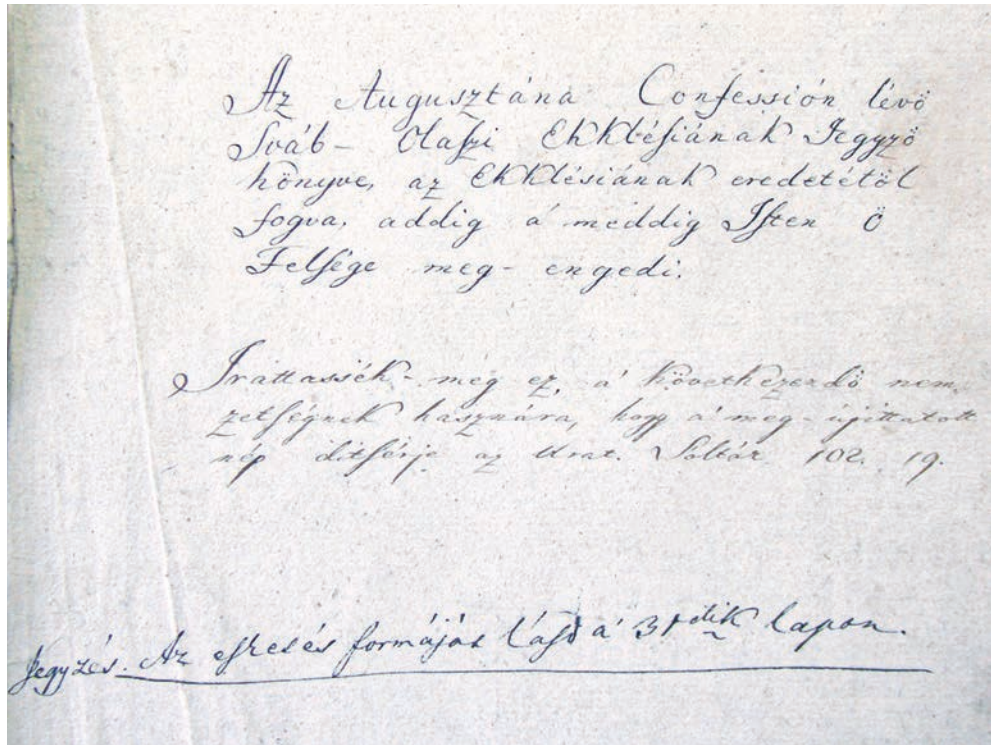 Az Augusztána Confessión lévő
Sváb-Olaszi Ekklésiának Jegyző
könyve, az Ekklésiának eredetétől
fogva, addig a' meddig Isten ő
Felsége meg-engedi.
Irattassék-még ez, a' következendő nem-
zetségnek hasznára, hogy a' meg-újíttatott
nép ditsérje az Urat. Soltár 102. 19.
Jegyzés. Az esketés formáját lásd a' 31dik lapon.